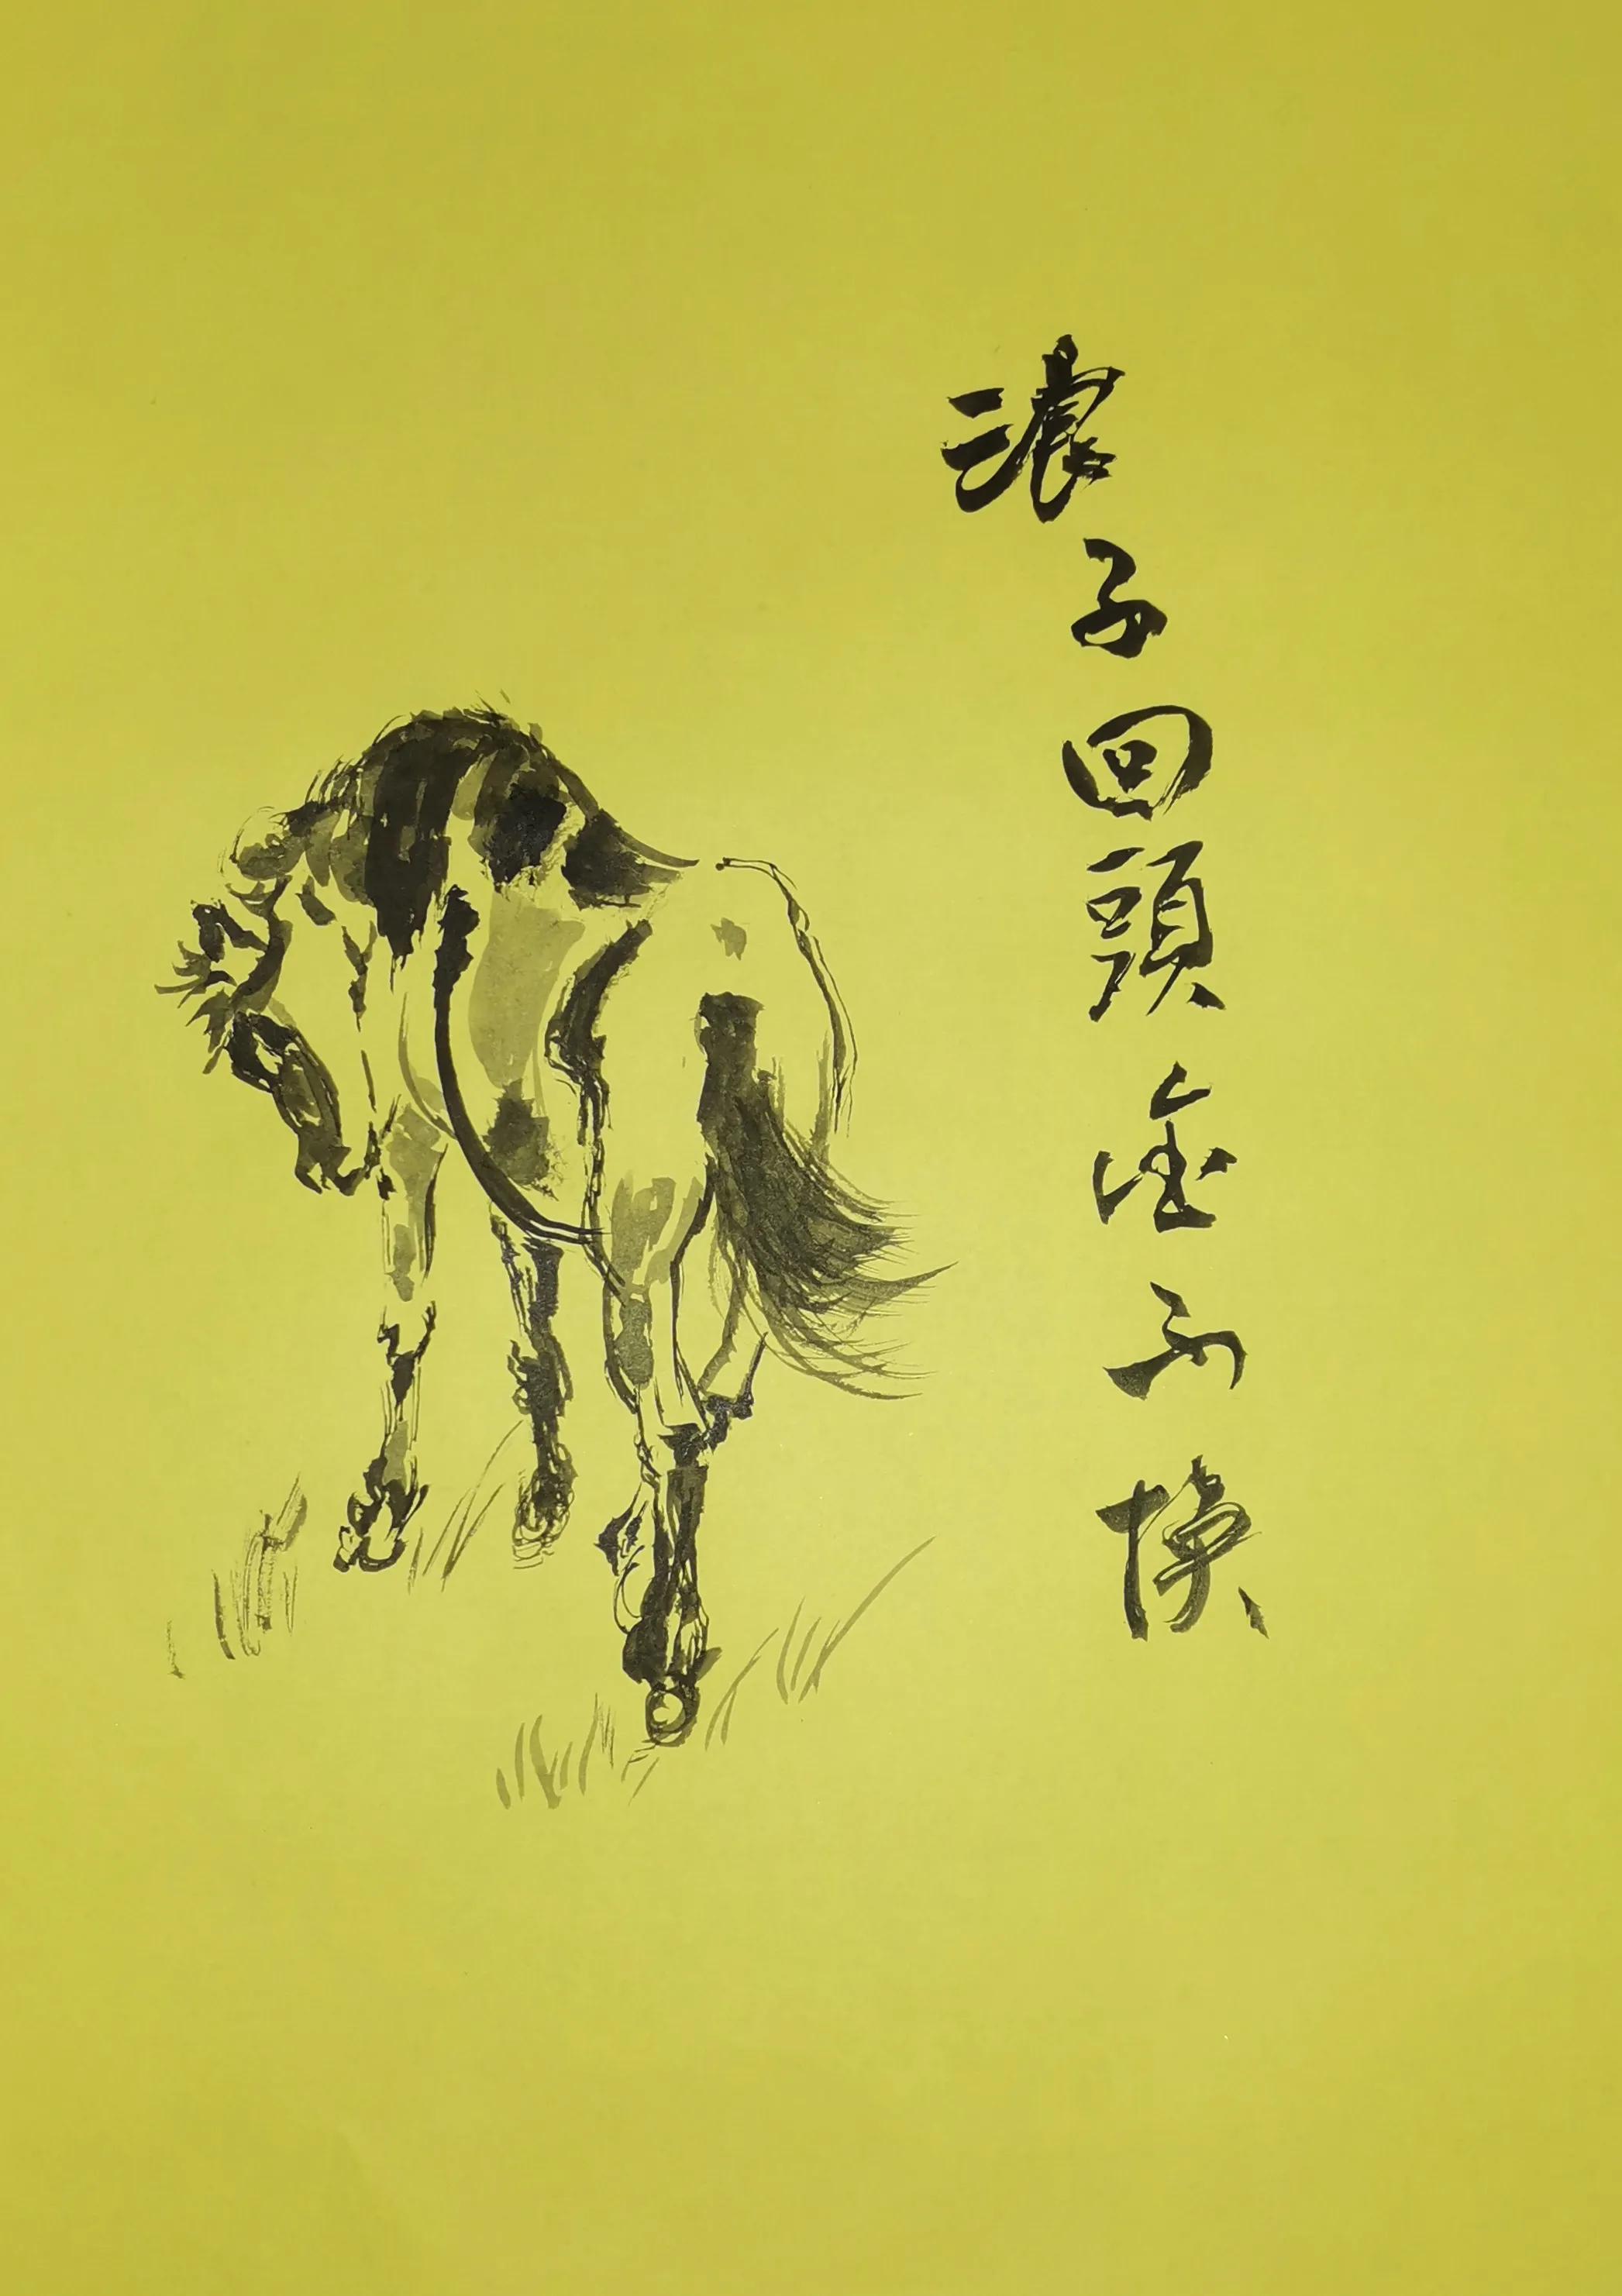 浪子回頭金不換